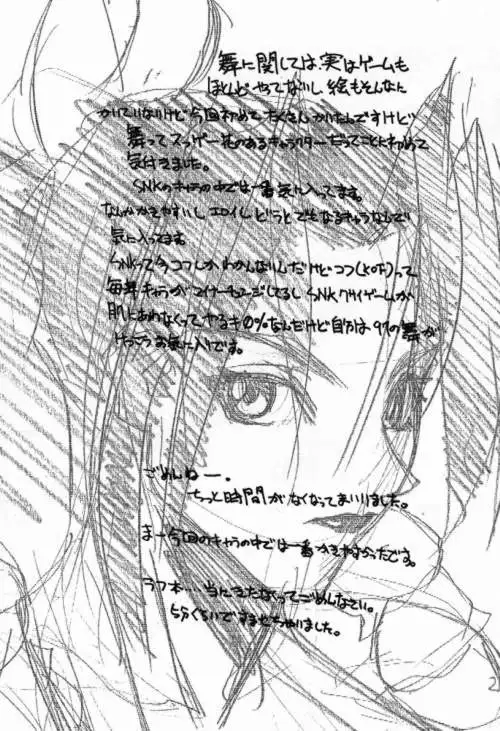 舞に関しては、実はゲームも
ほとんどやってないし、絵もそんなに
かいていないけど今回初めてたくさんかいたんですけど
舞ってスッゲー花のあるキャラクターだってことに初めて
気付きました。
SNKのキャラの中では一番気に入ってます。
なんかかきやすいし、エロイし、どうとでもなるキャラなんで
気に入ってます
SNKって今コフしかわかんないんだけど、コフ(KOF)って
毎年キャラがマイナーチェンジしてるし、SNKクサイゲームが
肌にあわなくってやるキ0%なんだけど自分は97の舞が
けっこうお気に入りです。
ごめんねー。
ちっと時間がなくなってまいりました。
まー今回のキャラの中では一番かきやすかったです。
ラフ本‥‥当にきたなくってごめんなさい。
5分くらいで